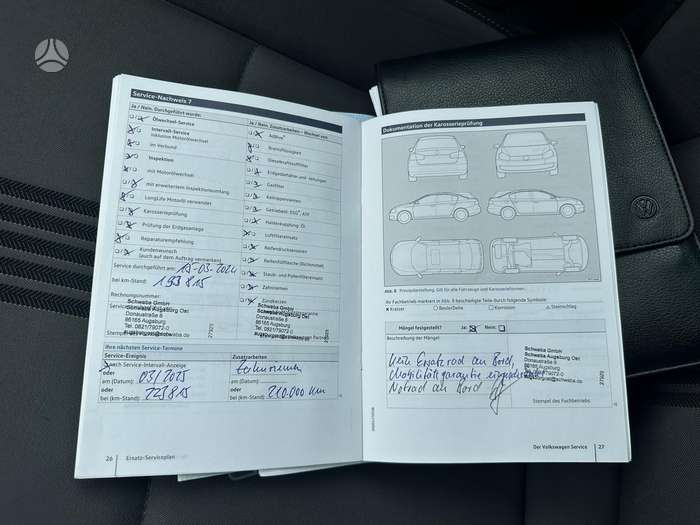 Service-Nachweis 7
Ja / Nein. Durchgeführt wurde:
Ölwechsel-Service
Intervall-Service
inklusive Motorölwechsel
im Verbund
Inspektion
mit Motorölwechsel
mit erweitertem Inspektionsumfang
LongLife Motoröl verwendet
Karosserieprüfung
Prüfung der Erdgasanlage
Reparaturempfehlung
Kundenwunsch
(auch auf dem Auftrag vermerken)
Service durchgeführt am: 19-03-2024
bei (km-Stand): 193815
Rechnungsnummer:
Ja / Nein. Zusatzarbeiten – Wechsel von
AdBlue®
Bremsflüssigkeit
Dieselkraftstofffilter
Erdgasbehälter und -leitungen
Gasfilter
Keilrippenriemen
Haldexkupplung Öl
Luftfiltereinsatz
Reifendruckserisoren
Staub- und Pollenfiltereinsatz
Zahnriemen
Zündkerzen
Schwaba GmbH
Schwaba Augsburg Ost
Donaustraße 8
86165 Augsburg
Tel. 0821/79072-0
27323
Ihre nächsten Service-Termine
Service-Ereignis
Zusatzarbeiten
nach Service-Intervall-Anzeige
oder
am (Datum): 03/2025
oder
bei (km-Stand): 223815
Zahnriemen
am (Datum):
oder
bei (km-Stand): 210.000 km
26 Ersatz-Serviceplan
Dokumentation der Karosserieprüfung
Abb. 8 Prinzipdarstellung. Gilt für alle Fahrzeuge und Karosserieformen.
Ihr Fachbetrieb markiert in Abb. 8 beschädigte Teile durch folgende Symbole:
X Kratzer
Beule/Delle
Korrosion
Steinschlag
Mängel festgestellt?
Ja:
Nein:
Beschreibung der Mängel:
Kein Ersatzrad an Bord,
Mobilitätsgarantie
Notrad an Bord
Schwaba GmbH
Schwaba Augsburg Ost
Donaustraße 8
86165 Augsburg
27323
Stempel des Fachbetriebs
Der Volkswagen Service 27